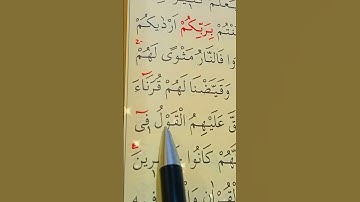 نْتُمْ بِرَبِّكُمْ اَرْدٰيكُمْ
وا فَالنَّارُ مَثْوًى لَهُمْ
وَقَيَّضْنَا لَهُمْ قُرَنَٓاءَ
قَّ عَلَيْهِمُ الْقَوْلُ فٖٓي
هُمْ كَانُوا سِرٖينَ